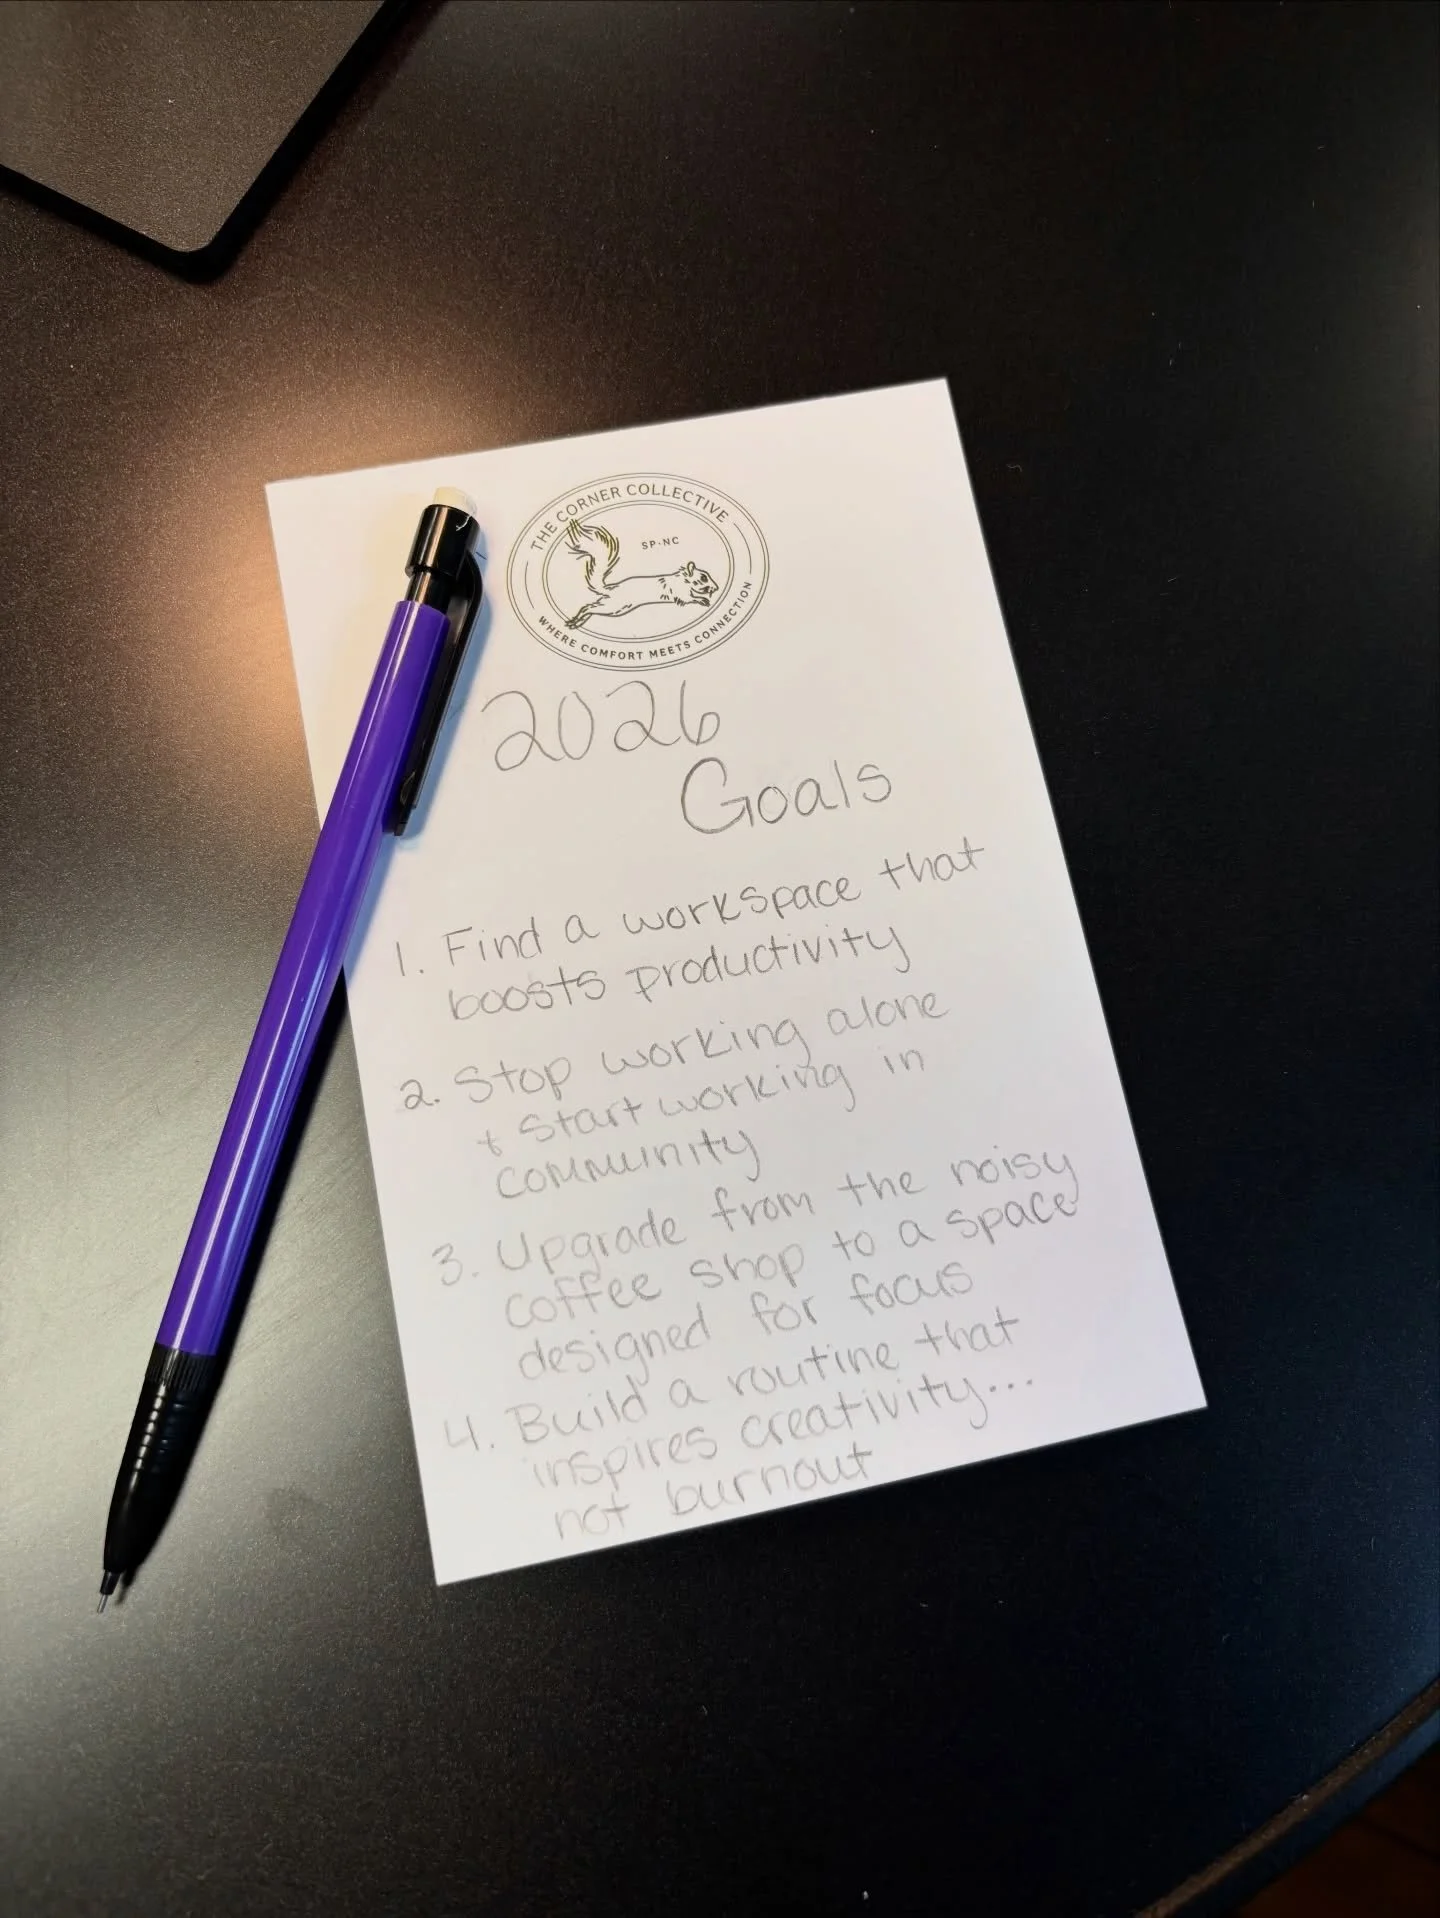 THE CORNER COLLECTIVE
SP-NC
WHERE COMFORT MEETS CONNECTION
2026
Goals
1. Find a workspace that
boosts productivity
2. Stop working alone
+ start working in
community
3. Upgrade from the noisy
coffee shop to a space
designed for focus
4. Build a routine that
inspires creativity...
not burnout